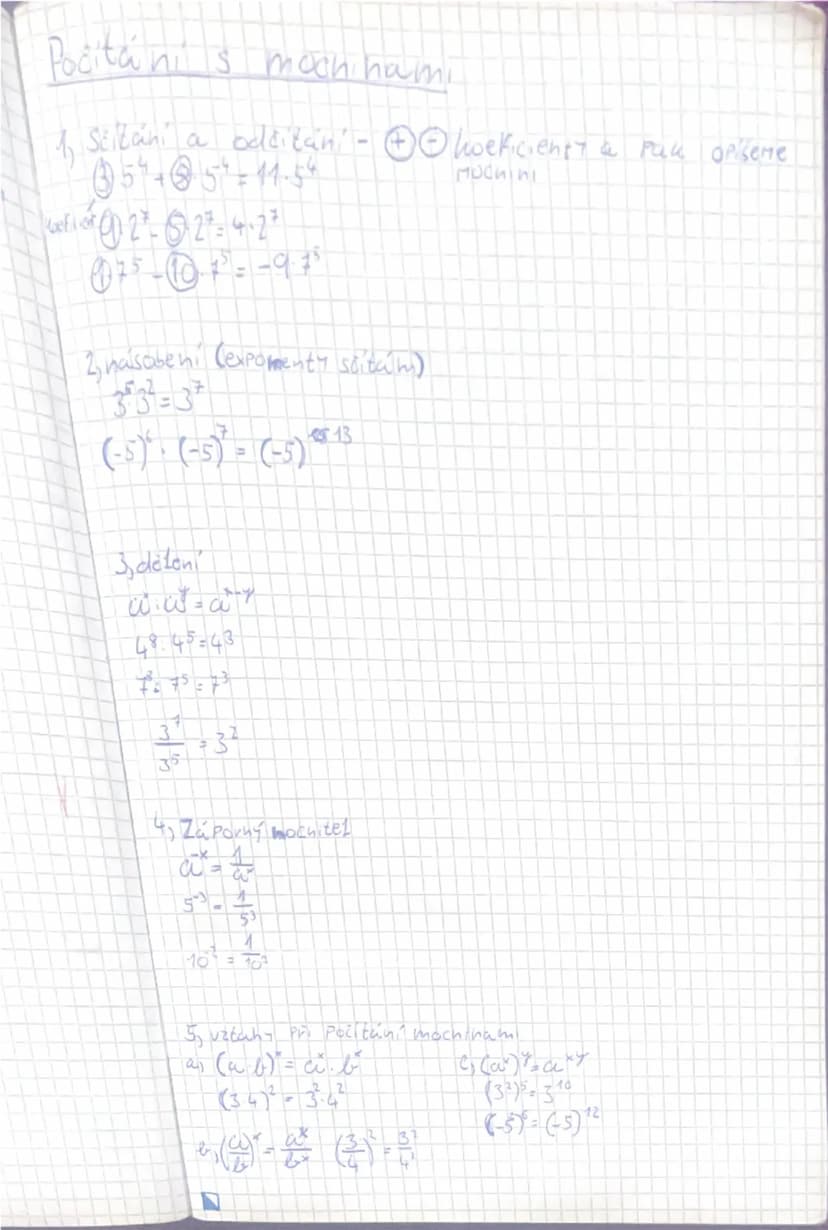 Počítání s mocninami
1, Sčítání a odčítání - ⊕ ⊖ koeficienty a pak opíšeme
mocnini
3·5⁴ + 8·5⁴ = 11·5⁴
9·2⁷ - 5·2⁷ = 4·2⁷
1·7⁵ - 10·7⁵ = -9·7⁵
2, násobení (exponenty sčítám)
3⁵·3² = 3⁷
(-5)⁶ · (-5)⁷ = (-5)¹³
3, dělení
aˣ : aʸ = aˣ⁻ʸ
4⁸ : 4⁵ = 4³
7⁸ : 7⁵ = 7³
3⁷/3⁵ = 3²
4, Záporný mocnitel
a⁻ˣ = 1/aˣ
5⁻³ = 1/5³
10⁻² = 1/10²
5, vztahy při počítání mocninami
a, (a·b)ˣ = aˣ·bˣ
(3·4)² = 3²·4²
b, (a/b)ˣ = aˣ/bˣ (3/4)² = 3²/4²
c, (aˣ)ʸ = aˣʸ
(3²)⁵ = 3¹⁰
(-5)⁶ = (-5)¹²